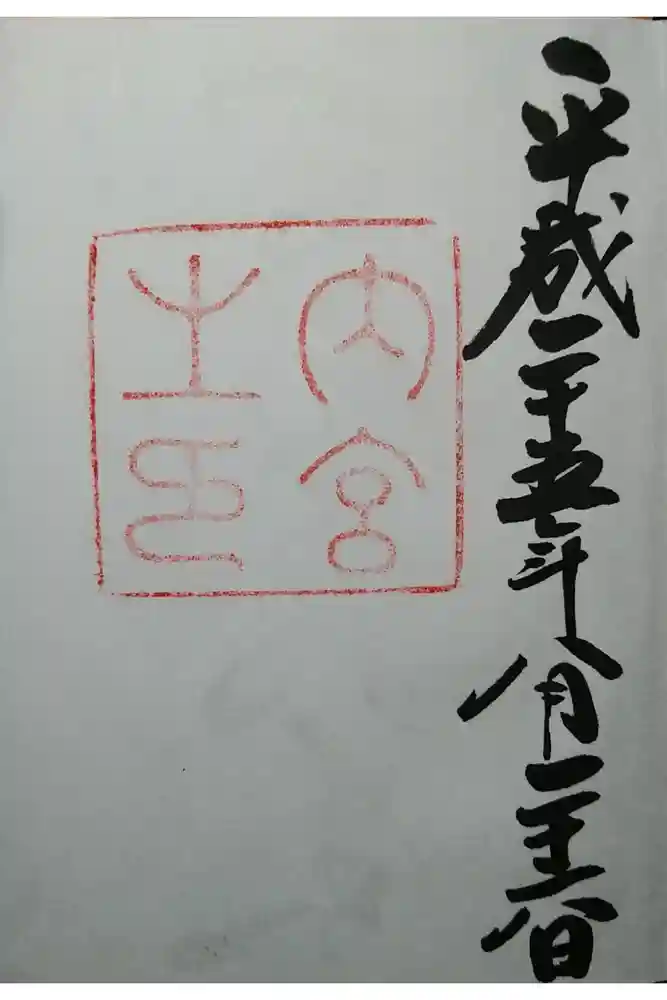 平成二十五年八月二十八日
内宮
之印